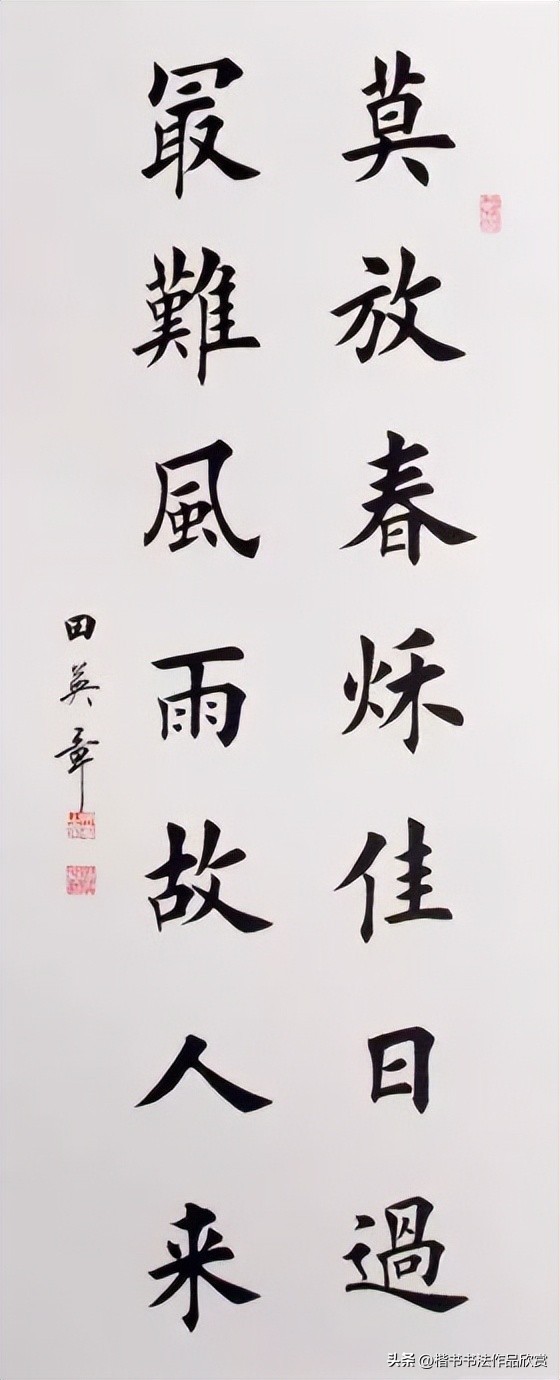 莫放春烁佳日過
最難風雨故人来
田英章
头条 @楷书书法作品欣赏